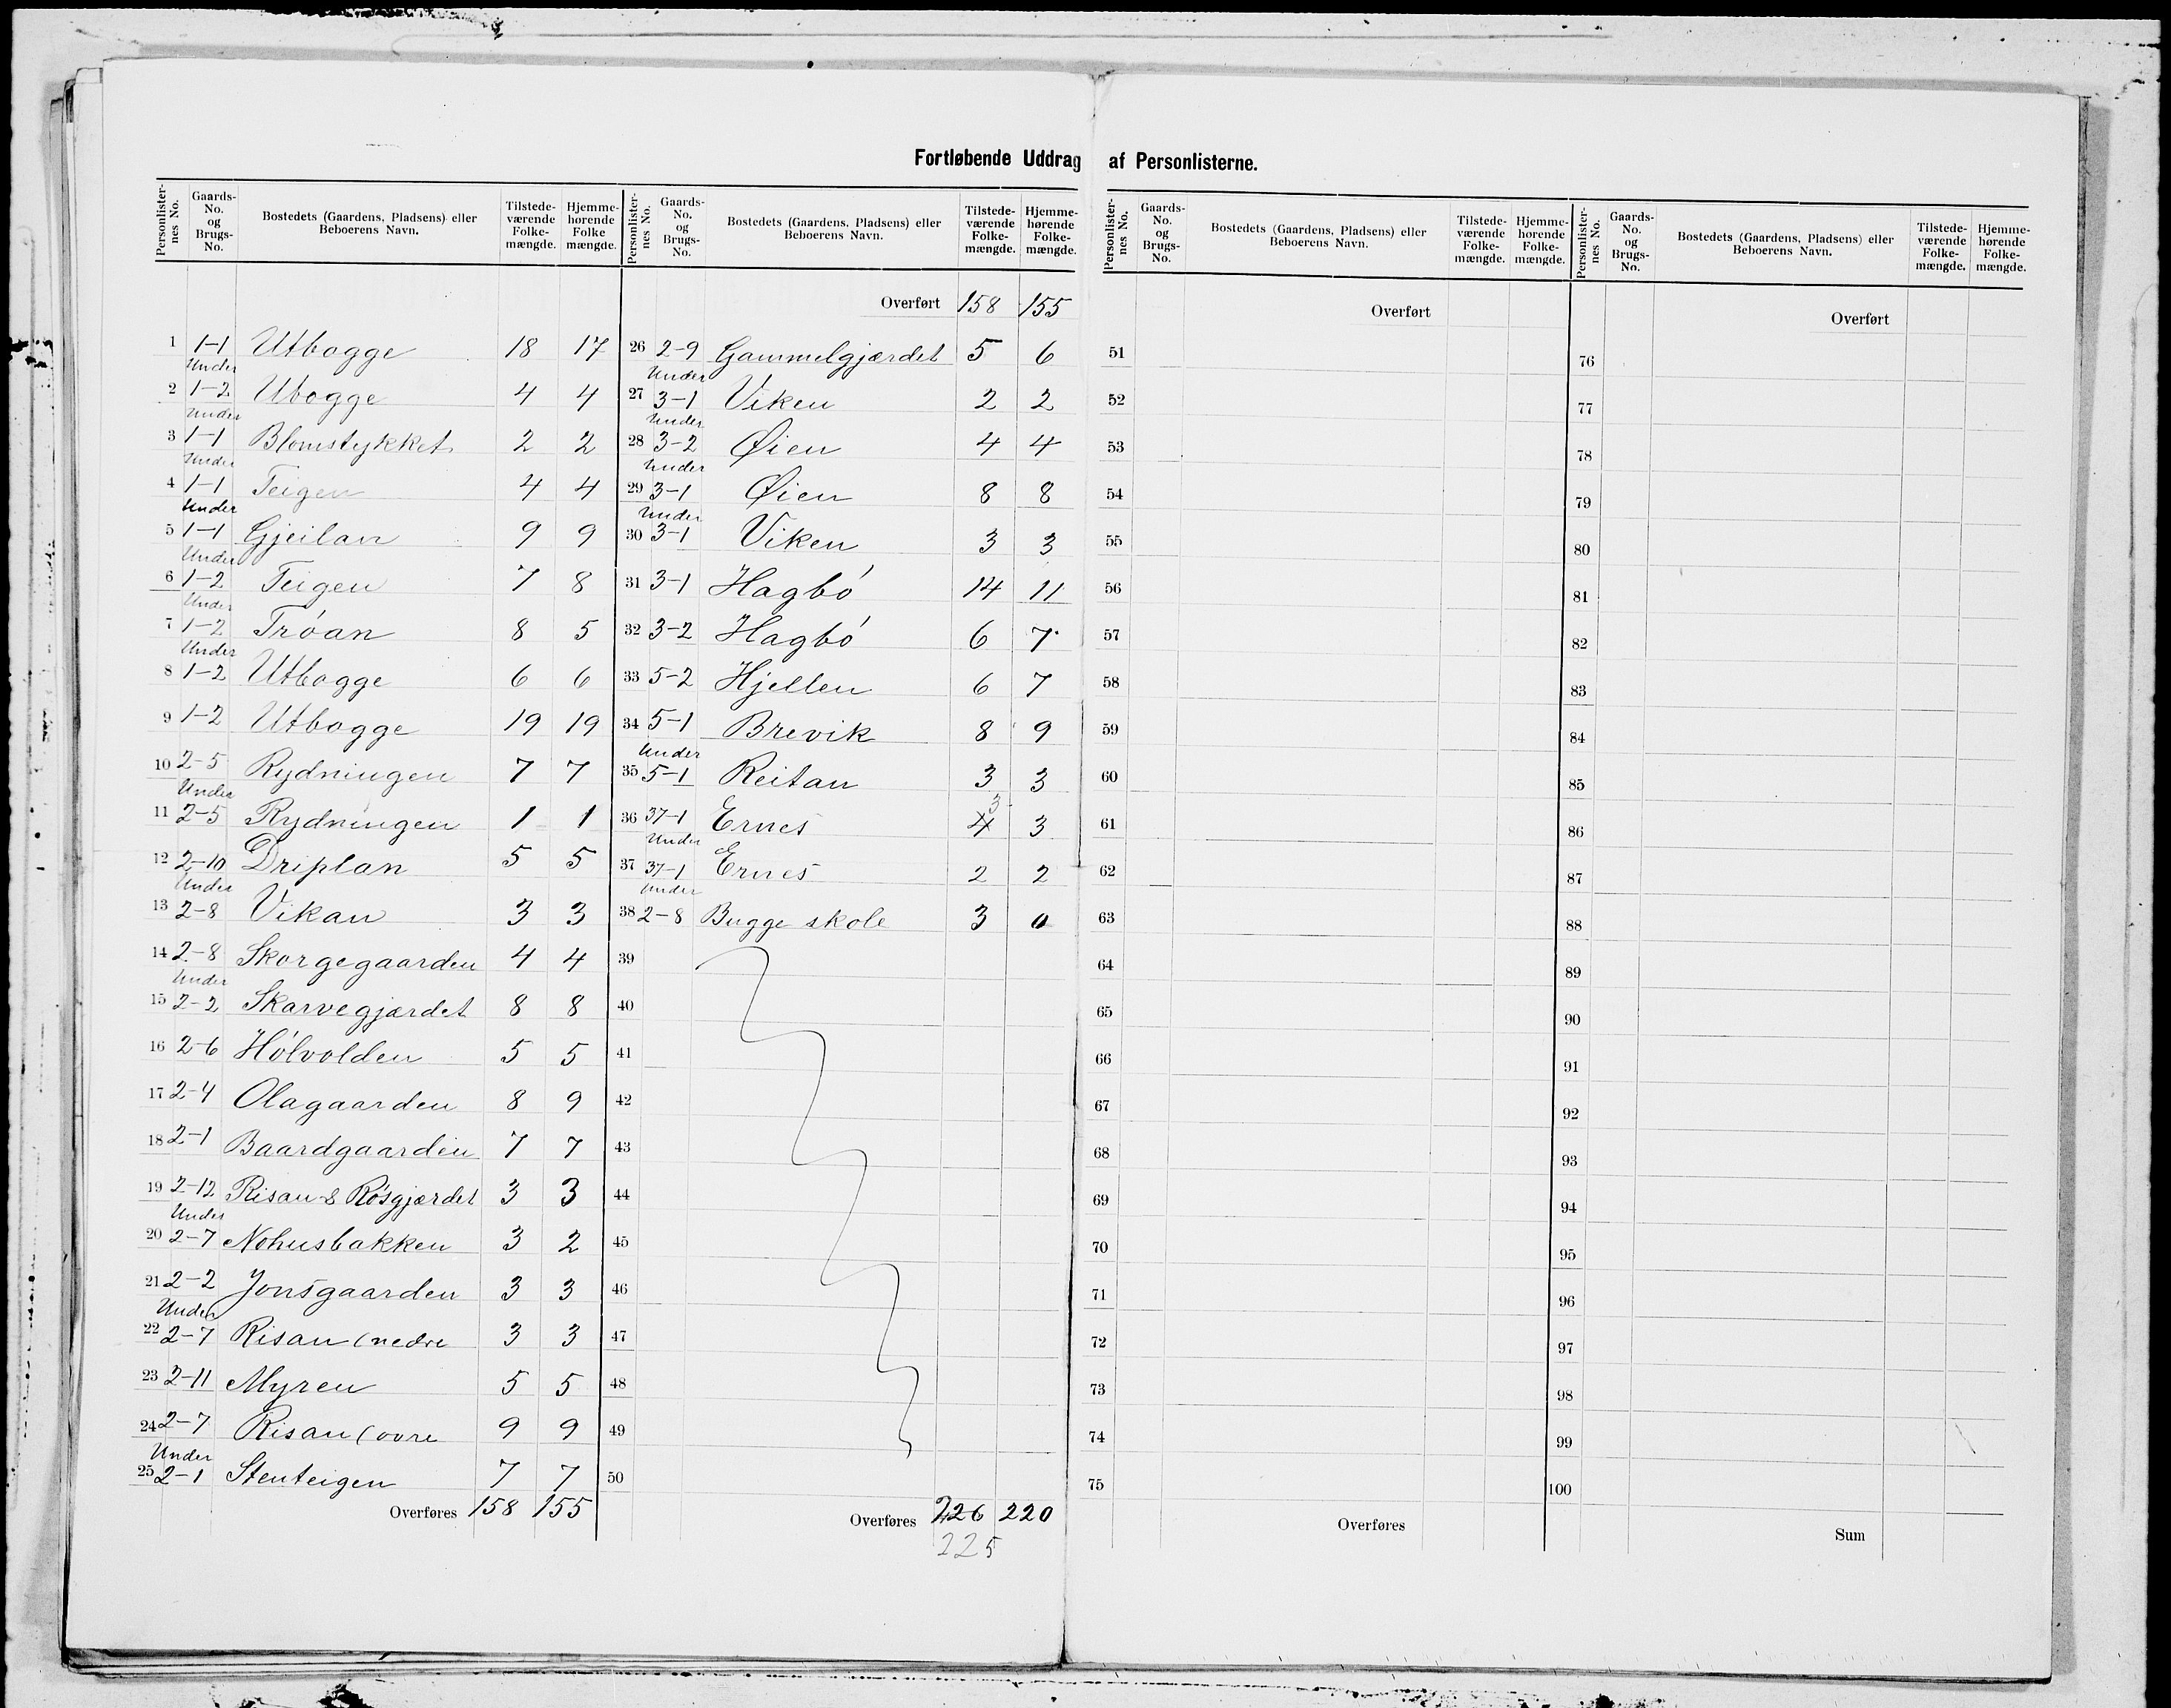 Fortløbende Uddrag af Personlisterne.
Personlisternes No. Gaards-No. og Brugs-No. Bostedets (Gaardens, Pladsens) eller Beboerens Navn. Tilstedeværende Folkemængde. Hjemmehørende Folkemængde.
1 1-1 Utbogge 18 17
2 Under 1-2 Utbogge 4 4
3 Under 1-1 Blomstykket 2 2
4 Under 1-1 Teigen 4 4
5 Under 1-1 Gjeilan 9 9
6 Under 1-2 Teigen 7 8
7 Under 1-2 Tróan 8 5
8 Under 1-2 Utbogge 6 6
9 1-2 Utbogge 19 19
10 2-5 Rydningen 7 7
11 Under 2-5 Rydningen 1 1
12 2-10 Driplan 5 5
13 Under 2-8 Vikan 3 3
14 2-8 Skorgegaarden 4 4
15 Under 2-2 Skarvegjærdet 8 8
16 2-6 Hólvolden 5 5
17 2-4 Olagaarden 8 9
18 2-1 Baardgaarden 7 7
19 2-12 Risan & Rósgjærdet 3 3
20 Under 2-7 Nohusbakken 3 2
21 2-2 Jonsgaarden 3 3
22 Under 2-7 Risan (nedre 3 3
23 2-11 Myren 5 5
24 2-7 Risan (øvre 9 9
25 Under 2-1 Stenteigen 7 7
Overføres 158 155
Personlisternes No. Gaards-No. og Brugs-No. Bostedets (Gaardens, Pladsens) eller Beboerens Navn. Tilstedeværende Folkemængde. Hjemmehørende Folkemængde.
Overført 158 155
26 2-9 Gammelgjærdet 5 6
27 Under 3-1 Viken 2 2
28 Under 3-2 Øien 4 4
29 Under 3-1 Øien 8 8
30 Under 3-1 Viken 3 3
31 3-1 Hagbó 14 11
32 3-2 Hagbó 6 7
33 5-2 Hjellen 6 7
34 5-1 Brevik 8 9
35 Under 5-1 Reitan 3 3
36 37-1 Ernes 4 3 3
37 Under 37-1 Ernes 2 2
38 Under 2-8 Bugge skole 3 0
39
40
41
42
43
44
45
46
47
48
49
50
Overføres 226 220
225
Personlisternes No. Gaards-No. og Brugs-No. Bostedets (Gaardens, Pladsens) eller Beboerens Navn. Tilstedeværende Folkemængde. Hjemmehørende Folkemængde.
Overført
51
52
53
54
55
56
57
58
59
60
61
62
63
64
65
66
67
68
69
70
71
72
73
74
75
Overføres
Personlisternes No. Gaards-No. og Brugs-No. Bostedets (Gaardens, Pladsens) eller Beboerens Navn. Tilstedeværende Folkemængde. Hjemmehørende Folkemængde.
Overført
76
77
78
79
80
81
82
83
84
85
86
87
88
89
90
91
92
93
94
95
96
97
98
99
100
Sum